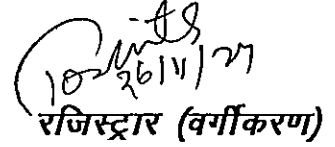 26/11/27
रजिस्ट्रार (वर्गीकरण)